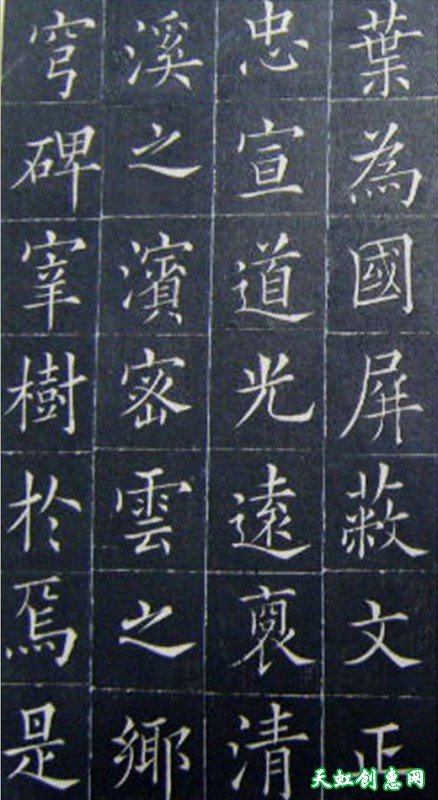 葉為國屏蔽文正
忠宣道光遠裒清
溪之濱密雲之鄉
穹碑宰樹於焉是
天虹创惠网